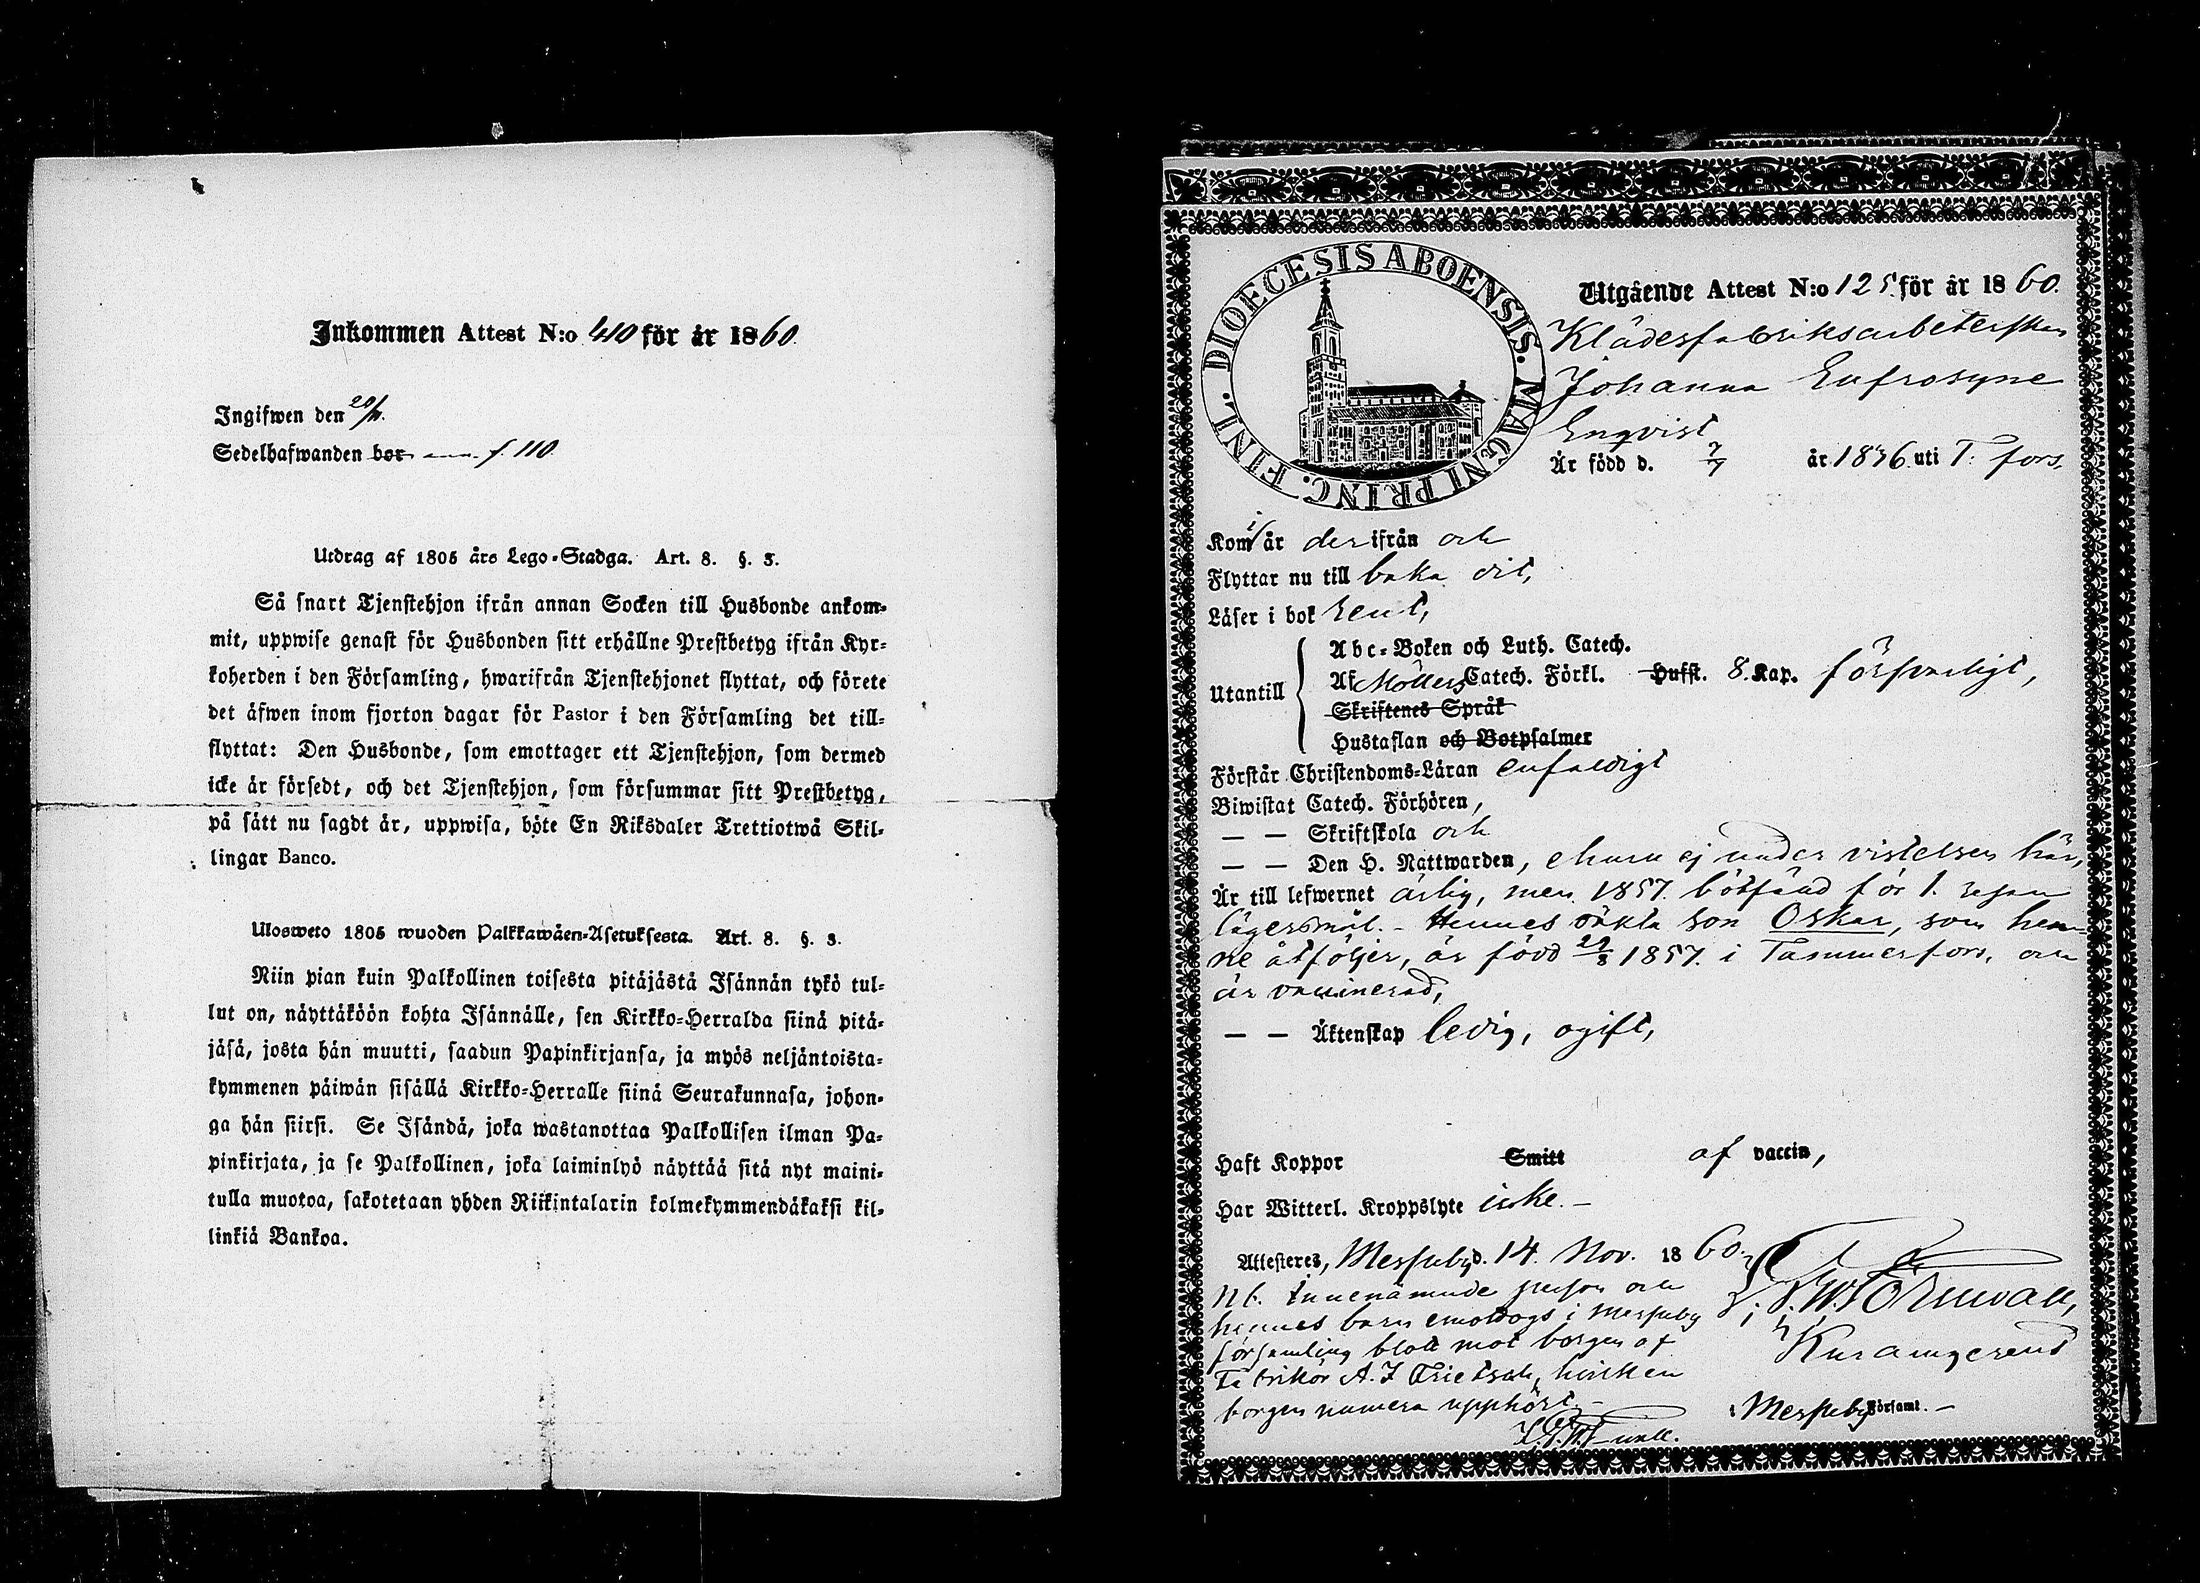 Inkommen Attest N:o 410 för år 1860.
Ingifwen den 20/11.
Sedelhafwanden bor f. 110
Utdrag af 1805 års Lego-Stadga. Art. 8. §. 3.
Så snart Tjenstehjon ifrån annan Socken till Husbonde ankom-
mit, uppwise genast för Husbonden sitt erhållne Prestbetyg ifrån Kyr-
koherden i den Församling, hwarifrån Tjenstehjonet flyttat, och förete
det äfwen inom fjorton dagar för Pastor i den Församling det till-
flyttat: Den Husbonde, som emottager ett Tjenstehjon, som dermed
icke är försedt, och det Tjenstehjon, som försummar sitt Prestbetyg,
på sätt nu sagdt är, uppwisa, böte En Riksdaler Trettiotwå Skil-
lingar Banco.
Ulosweto 1805 wuoden Palkkawäen-Asetuksesta. Art. 8. §. 3.
Niin pian kuin Palkollinen toisesta pitäjästä Isännän tykö tul-
lut on, näyttäköön kohta Isännälle, sen Kirkko-Herralda siinä pitä-
jäsä, josta hän muutti, saadun Papinkirjansa, ja myös neljäntoista-
kymmenen päiwän sisällä Kirkko-Herralle siinä Seurakunnasa, johon-
ga hän siirsi. Se Isändä, joka wastanottaa Palkollisen ilman Pa-
pinkirjata, ja se Palkollinen, joka laiminlyö näyttää sitä nyt maini-
tulla muotoa, sakotetaan yhden Riikintalarin kolmekymmendäkaksi kil-
linkiä Bankoa.
DIOECESIS ABOENSIS. MAGNI PRINC. FINL.
Utgående Attest N:o 125 för år 1860.
Klädesfabriksarbeterskan
Johanna Eufrosyne
Enqvist
Är född d. 7/7 år 1836 uti T: fors.
Kom i år der ifrån och
Flyttar nu till baka dit,
Läser i bok rent,
Abc-Boken och Luth. Catech.
Utantill Af Möllers Catech. Förkl. Husst. 8. Kap. försvarligt,
Skriftenes Språk
Hustaflan och Botpsalmer
Förstår Christendoms-Läran enfaldigt
Biwistat Catech. Förhören,
— — Skriftskola och
— — Den H. Nattwarden, ehuru ej under vistelsen här,
Är till lefwernet ärlig, men 1857. bötfäld för 1. resan
lägersmål. - Hennes oäkta son Oskar, som hen-
ne åtföljer, är född 29/8 1857. i Tammerfors, och
är vaccinerad,
— — Äktenskap ledig, ogift,
Haft Koppor Smitt af vaccin,
Har Witterl. Kroppslyte icke. -
Attesteres, Messuby d. 14. Nov. 1860.
Nb. Innenämnde person och
hennes barn emottogs i Messuby
församling blott mot borgen af
Fabrikör A. F Trietsch, hvilken
borgen numera upphört. -
Törnwall,
Messuby Församl. -